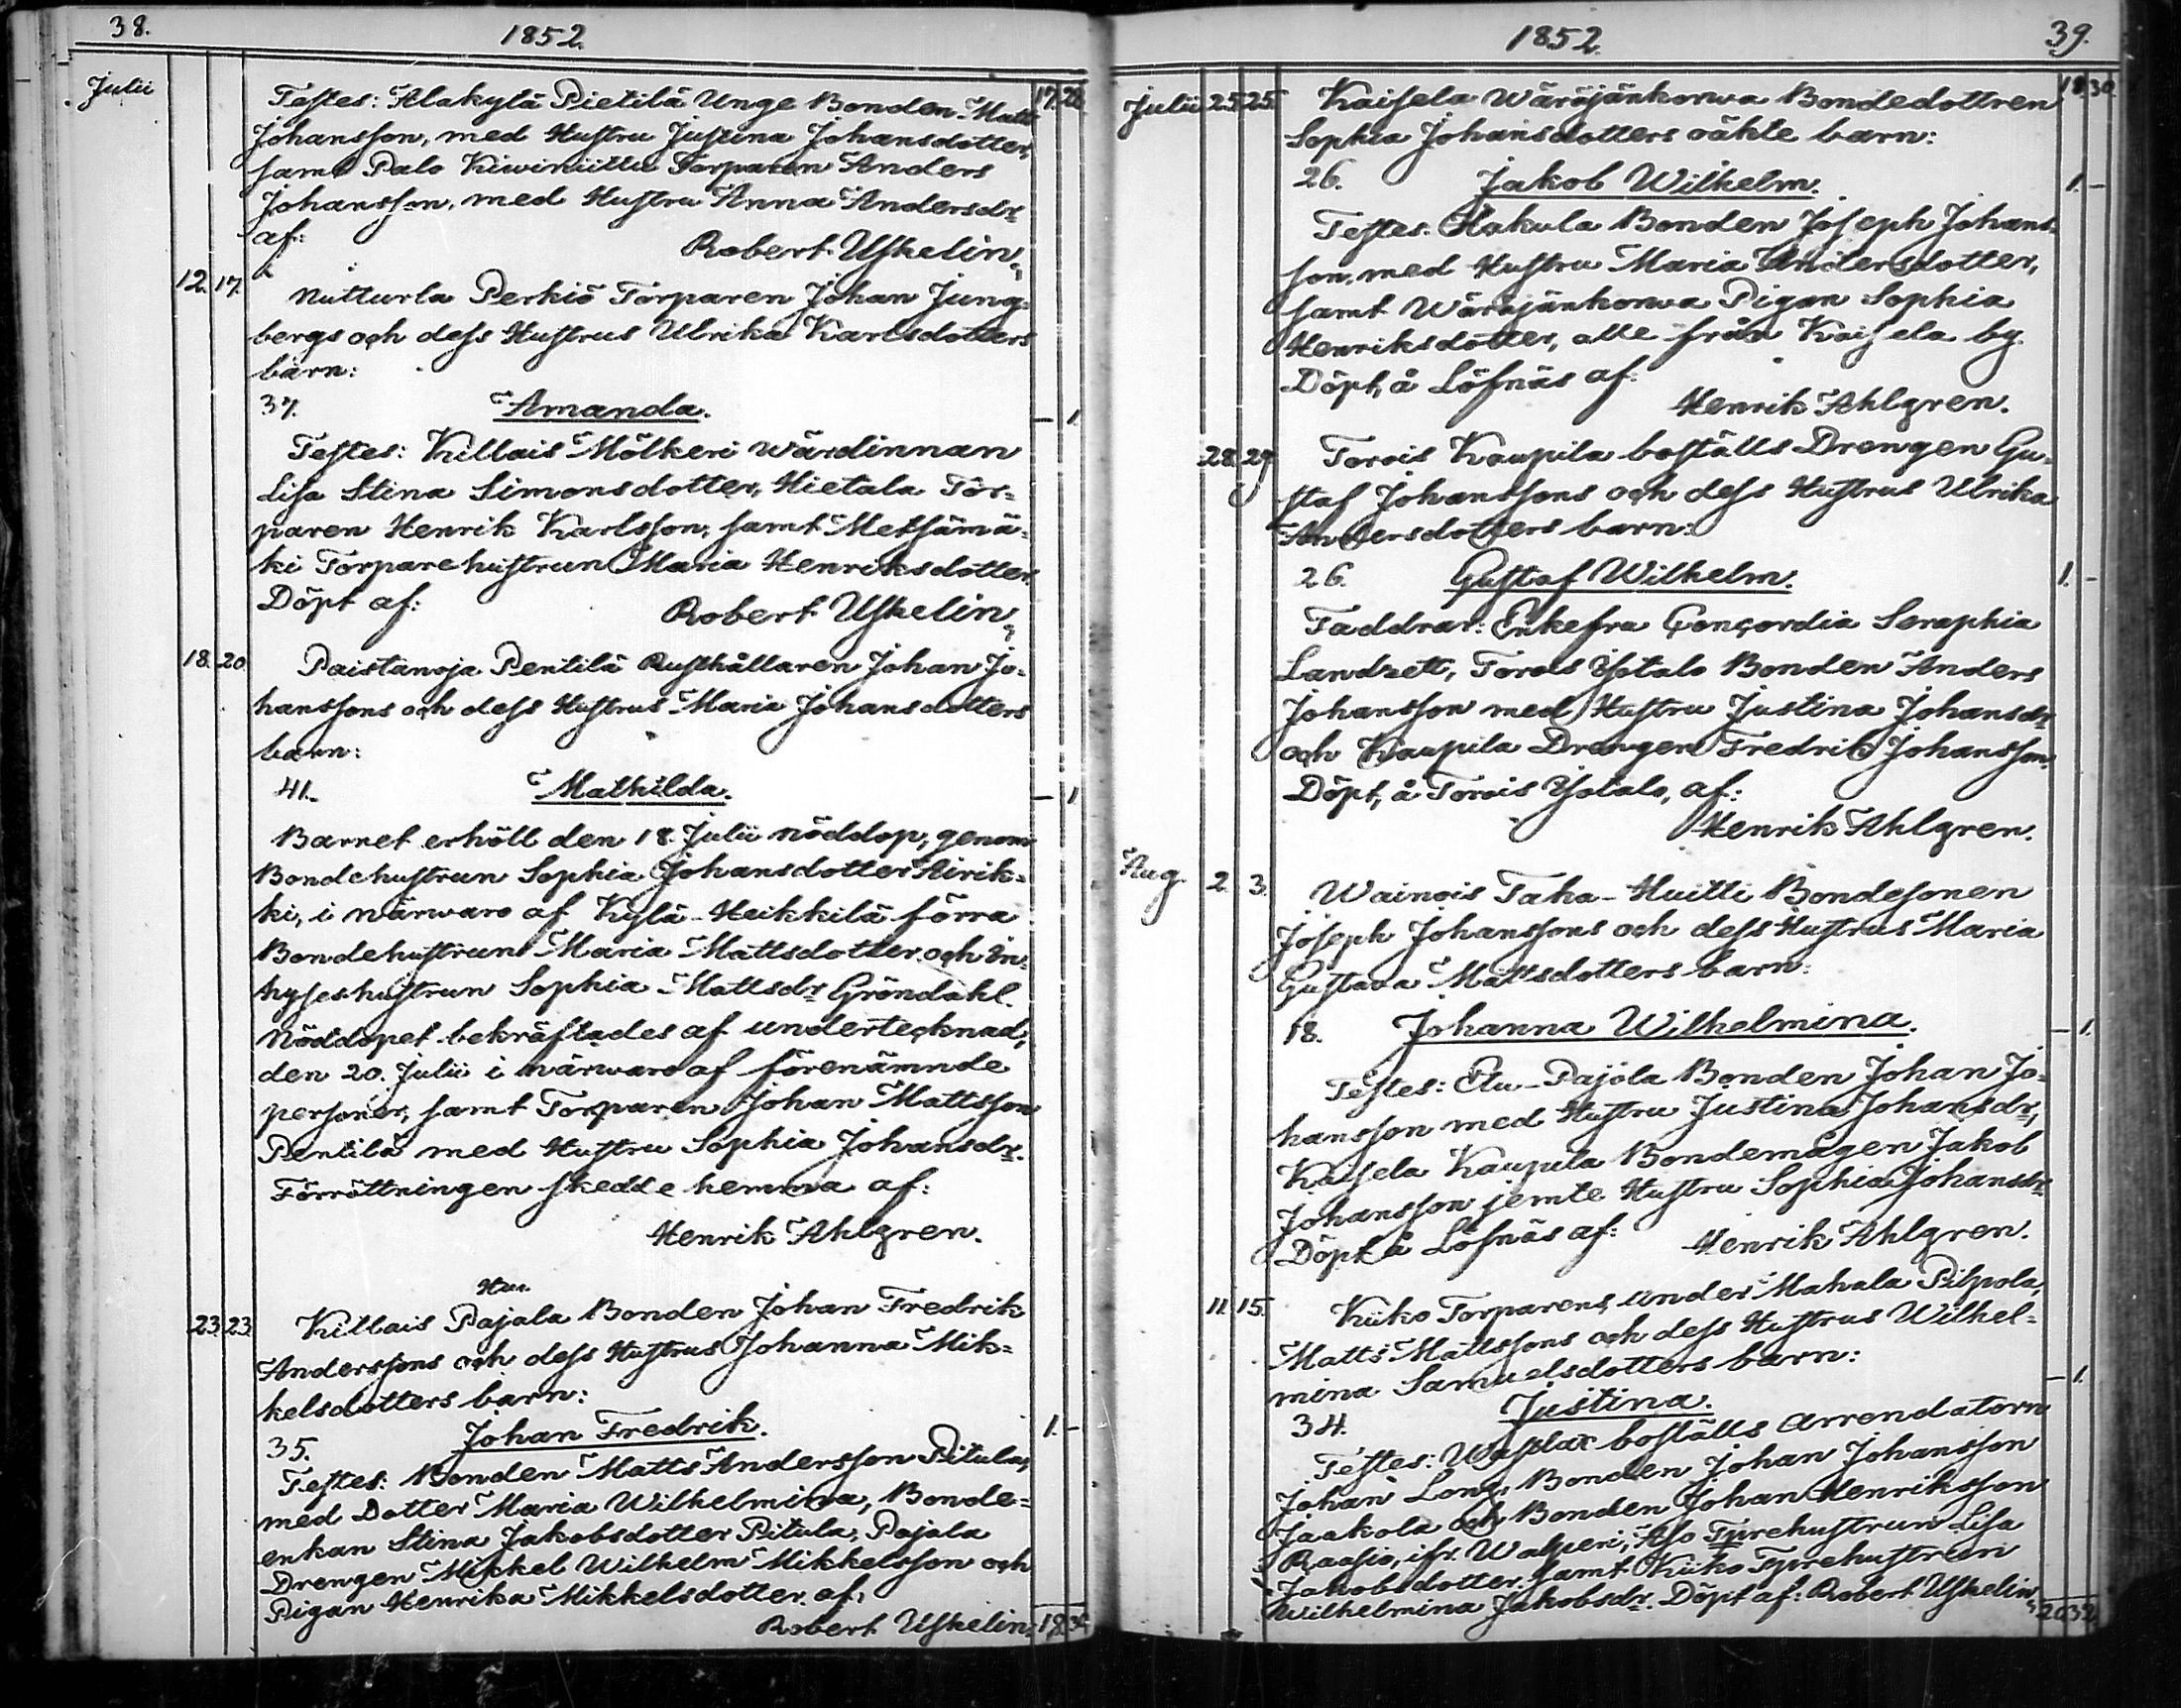 38.
1852.
Julii
17. 28.
Testes: Alakylä Pietilä Unge Bonden Matts
Johansson, med Hustru Justina Johansdotter,
samt Palo Kiwiniittu Torparen Anders
Johansson, med Hustru Anna Andersdr
af:
Robert Uskelin
12. 17.
Nutturla Perkiö Torparen Johan Jung-
bergs och dess Hustrus Ulrika Karlsdotters
barn:
37.
Amanda.
— 1.
Testes: Killais Mölkeri Wärdinnan
Lisa Stina Simonsdotter, Hietala Tor-
paren Henrik Karlsson, samt Metsämä-
ki Torparehustrun Maria Henriksdotter.
Döpt af:
Robert Uskelin
18. 20.
Paistanoja Pentilä Rusthållaren Johan Jo-
hanssons och dess Hustrus Maria Johansdotters
barn:
41.
Mathilda.
— 1.
Barnet erhöll den 18. Julii nöddop, genom
Bondehustrun Sophia Johansdotter Eirik-
ki, i närwaro af Kylä-Heikkilä förra
Bondehustrun Maria Mattsdotter och In-
hyseshustrun Sophia Mattsdr Gröndahl.
Nöddopet bekräftades af undertecknad,
den 20. Julii i närwaro af förenämnde
personer, samt Torparen Johan Mattsson
Pentilä med Hustru Sophia Johansdr.
Förrättningen skedde hemma af:
Henrik Ahlgren.
23. 23.
Killais Pajala Bonden Johan Fredrik
Anderssons och dess Hustrus Johanna Mik-
kelsdotters barn:
35.
Johan Fredrik.
1. —
Testes: Bonden Matts Andersson Pitula,
med Dotter Maria Wilhelmina, Bonde-
enkan Stina Jakobsdotter Pitula, Pajala
Drengen Mikkel Wilhelm Mikkelsson och
Pigan Henrika Mikkelsdotter af:
Robert Uskelin
18. 30.
1852.
39.
18. 30.
Julii 25. 25.
Kaisela Wäräjänkorwa Bondedottren
Sophia Johansdotters oäkte barn:
26.
Jakob Wilhelm.
1. —
Testes: Hakula Bonden Joseph Johans-
son, med Hustru Maria Andersdotter,
samt Wäräjänkorwa Pigan Sophia
Henriksdotter, alle från Kaisela by.
Döpt, å Löfnäs af:
Henrik Ahlgren.
28. 29.
Torois Kaupila boställs Drengen Gu-
staf Johanssons och dess Hustrus Ulrika
Andersdotters barn:
26.
Gustaf Wilhelm.
1. —
Faddrar: Enkefru Concordia Seraphia
Landzett, Torois Ysotalo Bonden Anders
Johansson med Hustru Justina Johansdr
och Kaupila Drengen Fredrik Johansson.
Döpt, å Torois Ysotalo, af:
Henrik Ahlgren.
Aug. 2. 3.
Wainois Taka-Huitti Bondesonen
Joseph Johanssons och dess Hustrus Maria
Gustava Mattsdotters barn:
18.
Johanna Wilhelmina.
— 1.
Testes: Etu-Pajola Bonden Johan Jo-
hansson med Hustru Justina Johansdr,
Kaisela Kaupila Bondemågen Jakob
Johansson jemte Hustru Sophia Johansdr
Döpt å Löfnäs af:
Henrik Ahlgren.
11. 15.
Kiiko Torparens, under Mahala Pilpola,
Matts Mattssons och dess Hustrus Wilhel-
mina Samuelsdotters barn:
34.
Justina.
— 1.
Testes: boställs Arrendatorn
Johan Long, Bonden Johan Johansson
Jaakola och Bonden Johan Henriksson
Raasio, ifr. Walperi, Aso Tprehustrun Lisa
Jakobsdotter samt Kiiko Tprehustrun
Wilhelmina Jakobsdr. Döpt af: Robert Uskelin
20. 32.